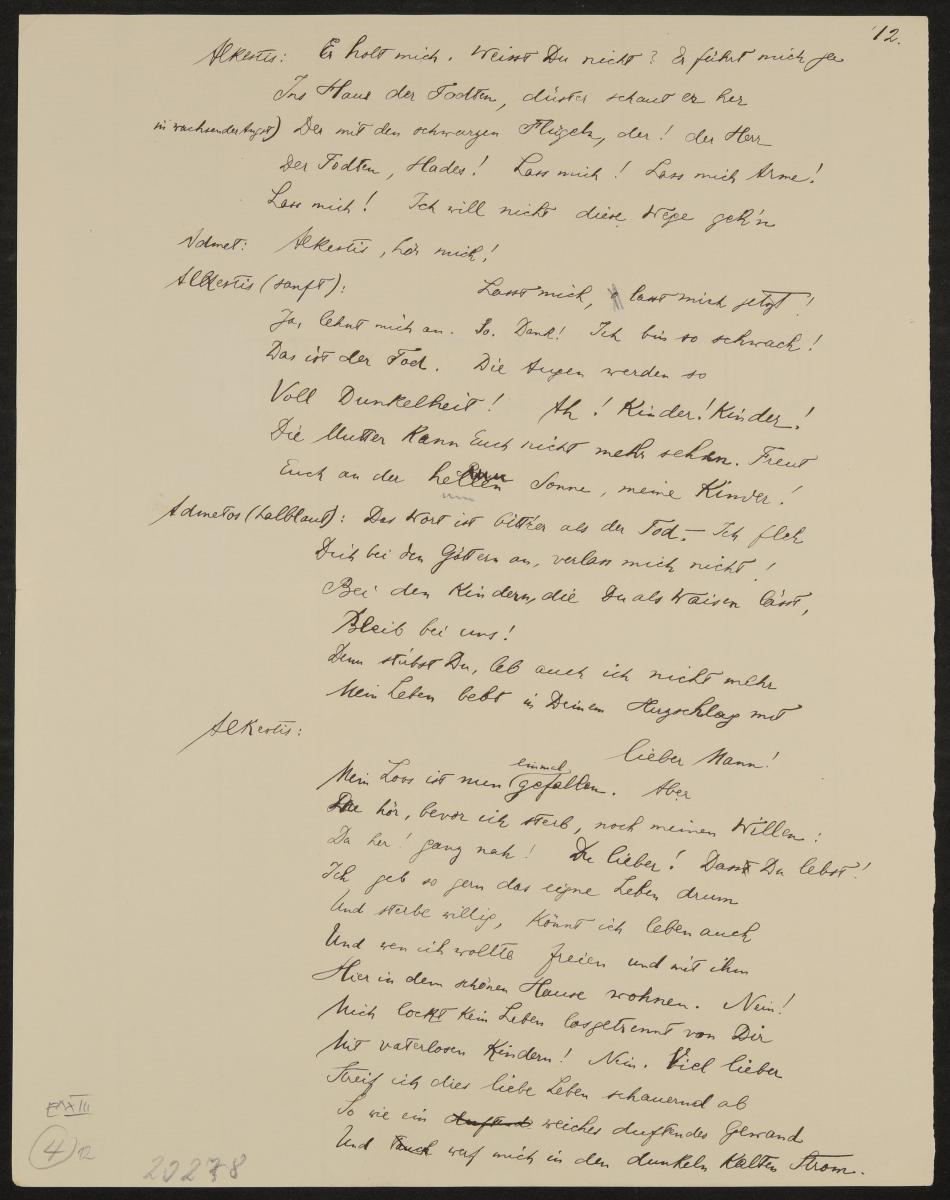 12.
Alkestis: Er holt mich. Weisst Du nicht? Er führt mich ja
Ins Haus der Todten, düster schaut er her
in wachsender Angst) Der mit den schwarzen Flügeln, der! der Herr
Der Todten, Hades! Lass mich! Lass mich Arme!
Lass mich! Ich will nicht diese Wege geh'n
Admet: Alkestis, hör mich!
Alkestis (sanft): Lasst mich, lasst mich jetzt!
Ja, lehnt mich an. So. Dank! Ich bin so schwach!
Das ist der Tod. Die Augen werden so
Voll Dunkelheit! Ah! Kinder! Kinder!
Die Mutter kann Euch nicht mehr sehn. Freut
Euch an der hellen Sonne, meine Kinder!
Admetos (halblaut): Das Wort ist bittrer als der Tod. – Ich fleh
Dich bei den Göttern an, verlass mich nicht!
Bei den Kindern, die Du als Waisen lässt,
Bleib bei uns!
Denn stirbst Du, leb auch ich nicht mehr
Mein Leben bebt in Deinem Herzschlag mit
Alkestis:
lieber Mann!
Mein Loos ist nun einmal gefallen. Aber
Du hör, bevor ich sterb, noch meinen Willen:
Da her! ganz nah! Du lieber! Dass Du lebst!
Ich geb so gern das eigne Leben drum
Und sterbe willig, könnt ich leben auch
Und wen ich wollte freien und mit ihm
Hier in dem schönen Hause wohnen. Nein!
Mich lockt kein Leben losgetrennt von Dir
Mit vaterlosen Kindern! Nein. Viel lieber
Streif ich dies liebe Leben schauernd ab
So wie ein weiches duftendes Gewand
Und werf mich in den dunkeln kalten Strom.
4 12
20278